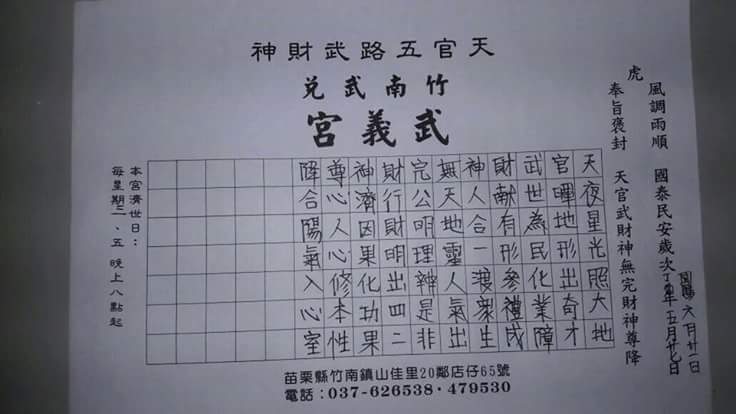 天官五路武財神
竹南武兌
武義宮
風調雨順 國泰民安歲次丁酉年五月廿七日
國曆六月廿一日
虎
奉旨褒封 天官武財神無完財神尊降
天夜星光照大地
官暉地形出奇才
武世為民化業障
財獻有形參禮成
神人合一渡眾生
無天地靈人氣出
完公明理辨是非
財行財明出四二
神濟因果化功果
尊心人心修本性
降合陽氣入心室
本宮濟世日：
每星期二、五 晚上八點起
苗栗縣竹南鎮山佳里20鄰店仔65號
電話：037-626538·479530